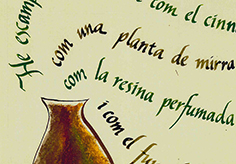 He escamp
com el cinn
com una planta de mirra
com la resina perfumada
i com el fu